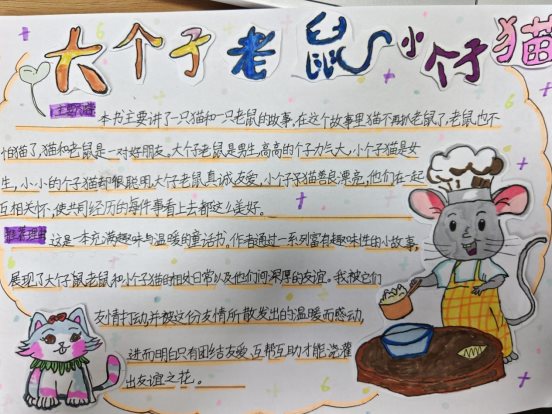 大个子老鼠小个子猫
主要内容 本书主要讲了一只猫和一只老鼠的故事,在这个故事里猫不再抓老鼠了,老鼠也不
怕猫了,猫和老鼠是一对好朋友。大个子老鼠是男生,高高的个子力气大,小个子猫是女
生,小小的个子猫却很聪明,大个子老鼠真诚友爱,小个子猫善良漂亮,他们在一起
互相关怀,使共同经历的每件事看上去都这么美好。
推荐理由 这是一本充满趣味与温暖的童话书,作者通过一系列富有趣味性的小故事,
展现了大个子鼠老鼠和小个子猫的相处日常以及他们间深厚的友谊。我被它们
友情打动并被这份友情所散发出的温暖而感动,
进而明白只有团结友爱,互帮互助才能浇灌
出友谊之花。